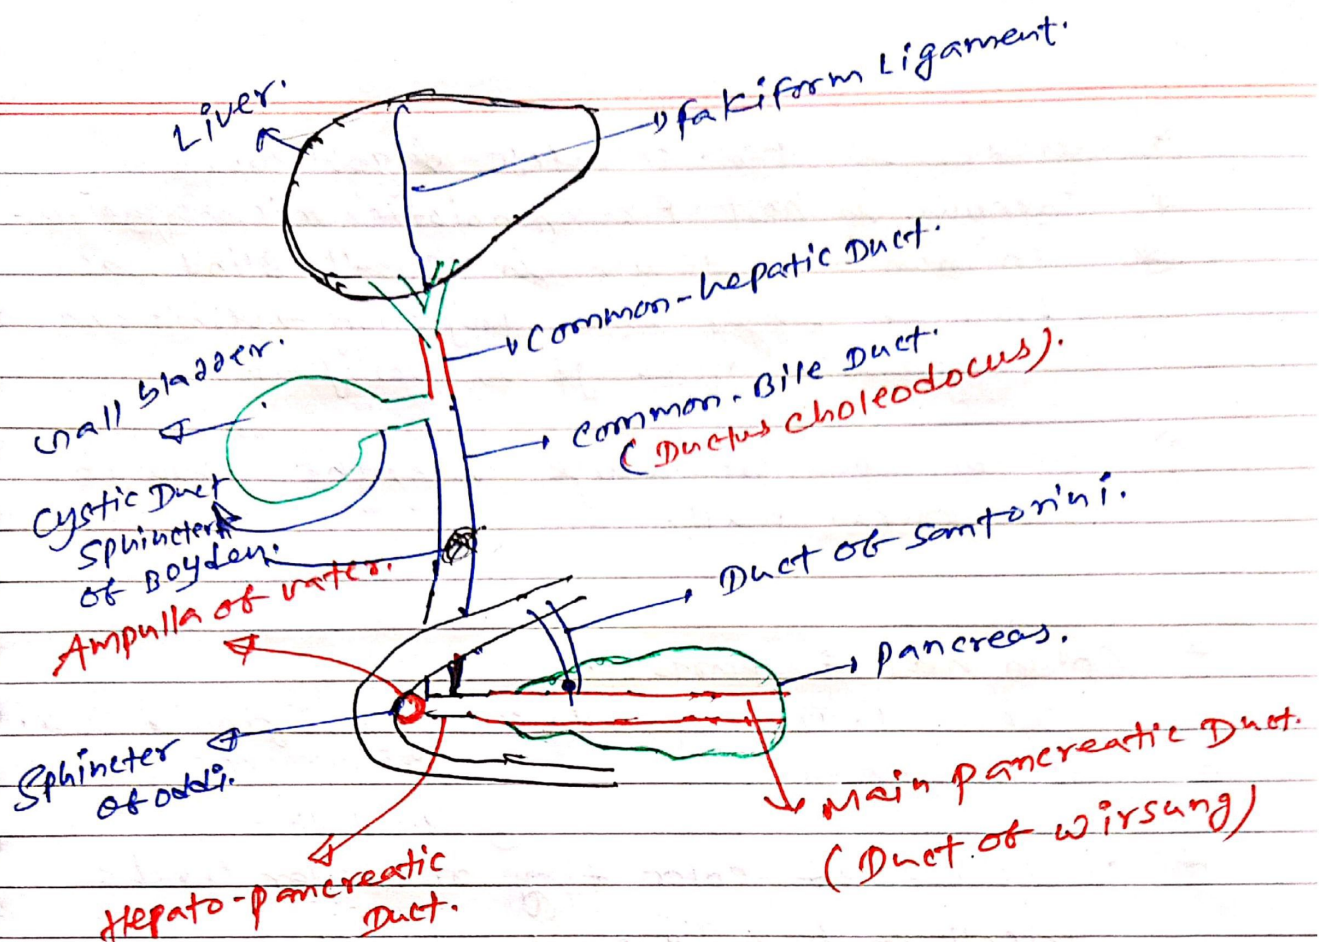 Liver.
fakiform Ligament.
Common-hepatic Duct.
Gall bladder.
Common-Bile Duct.
(Ductus choleodocus).
Cystic Duct
Sphincter
of Boyden.
Duct of Santorini.
Ampulla of vater.
Pancreas.
Sphincter
of oddi.
Main pancreatic Duct.
(Duct of wirsung)
Hepato-pancreatic
Duct.